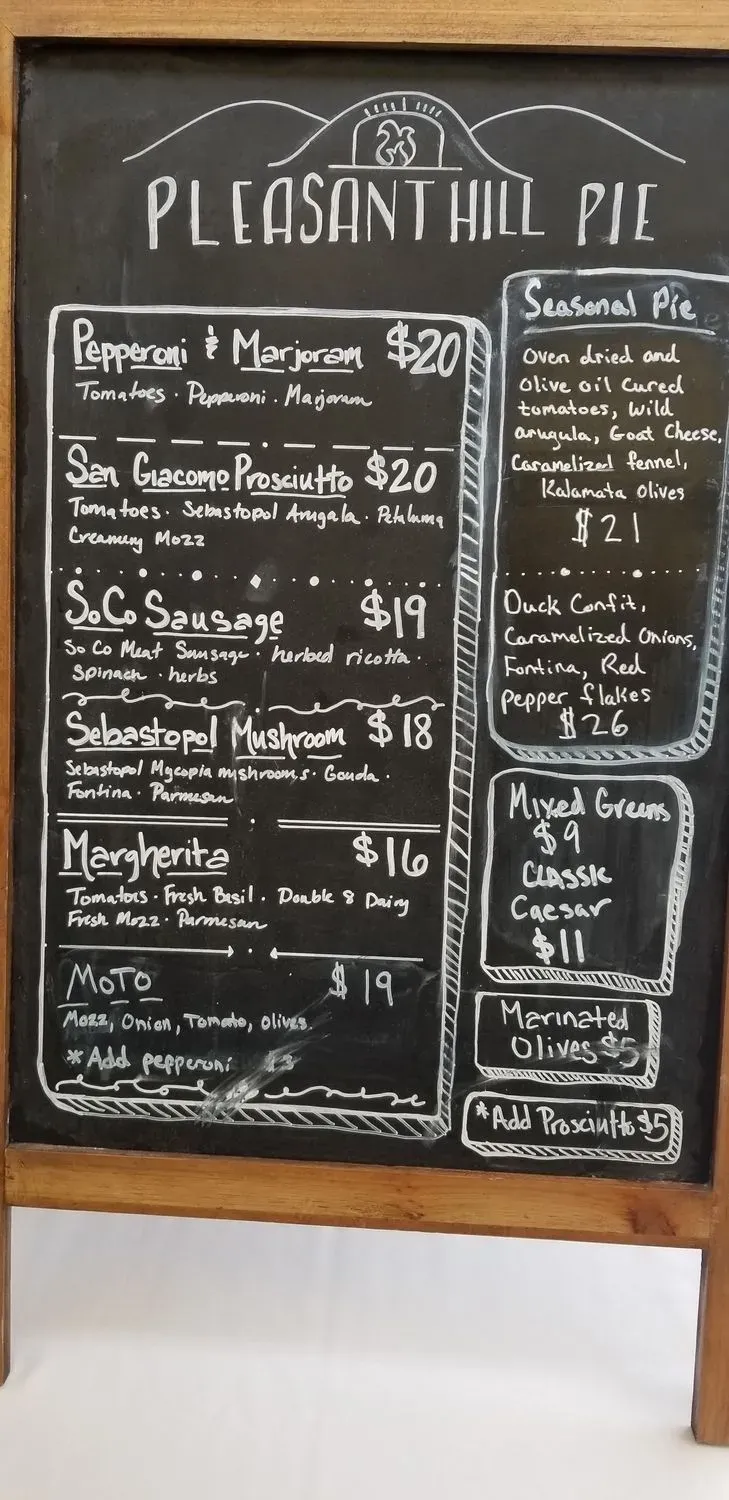 PLEASANT HILL PIE
Pepperoni & Marjoram $20
Tomatoes · Pepperoni · Marjoram
San Giacomo Prosciutto $20
Tomatoes · Sebastopol Arugala · Petaluma
Creamery Mozz
SoCo Sausage $19
So Co Meat Sausage · herbed ricotta ·
Spinach · herbs
Sebastopol Mushroom $18
Sebastopol Mycopia mushrooms · Gouda ·
Fontina · Parmesan
Margherita $16
Tomatoes · Fresh Basil · Double 8 Dairy
Fresh Mozz · Parmesan
MOTO $19
Mozz, Onion, Tomato, olives.
*Add pepperoni $3
Seasonal Pie
Oven dried and
olive oil cured
tomatoes, wild
arugula, Goat Cheese,
Caramelized fennel,
Kalamata olives
$21
Duck Confit,
Caramelized Onions,
Fontina, Red
pepper flakes
$26
Mixed Greens
$9
CLASSIC
Caesar
$11
Marinated
Olives $5
*Add Prosciutto $5